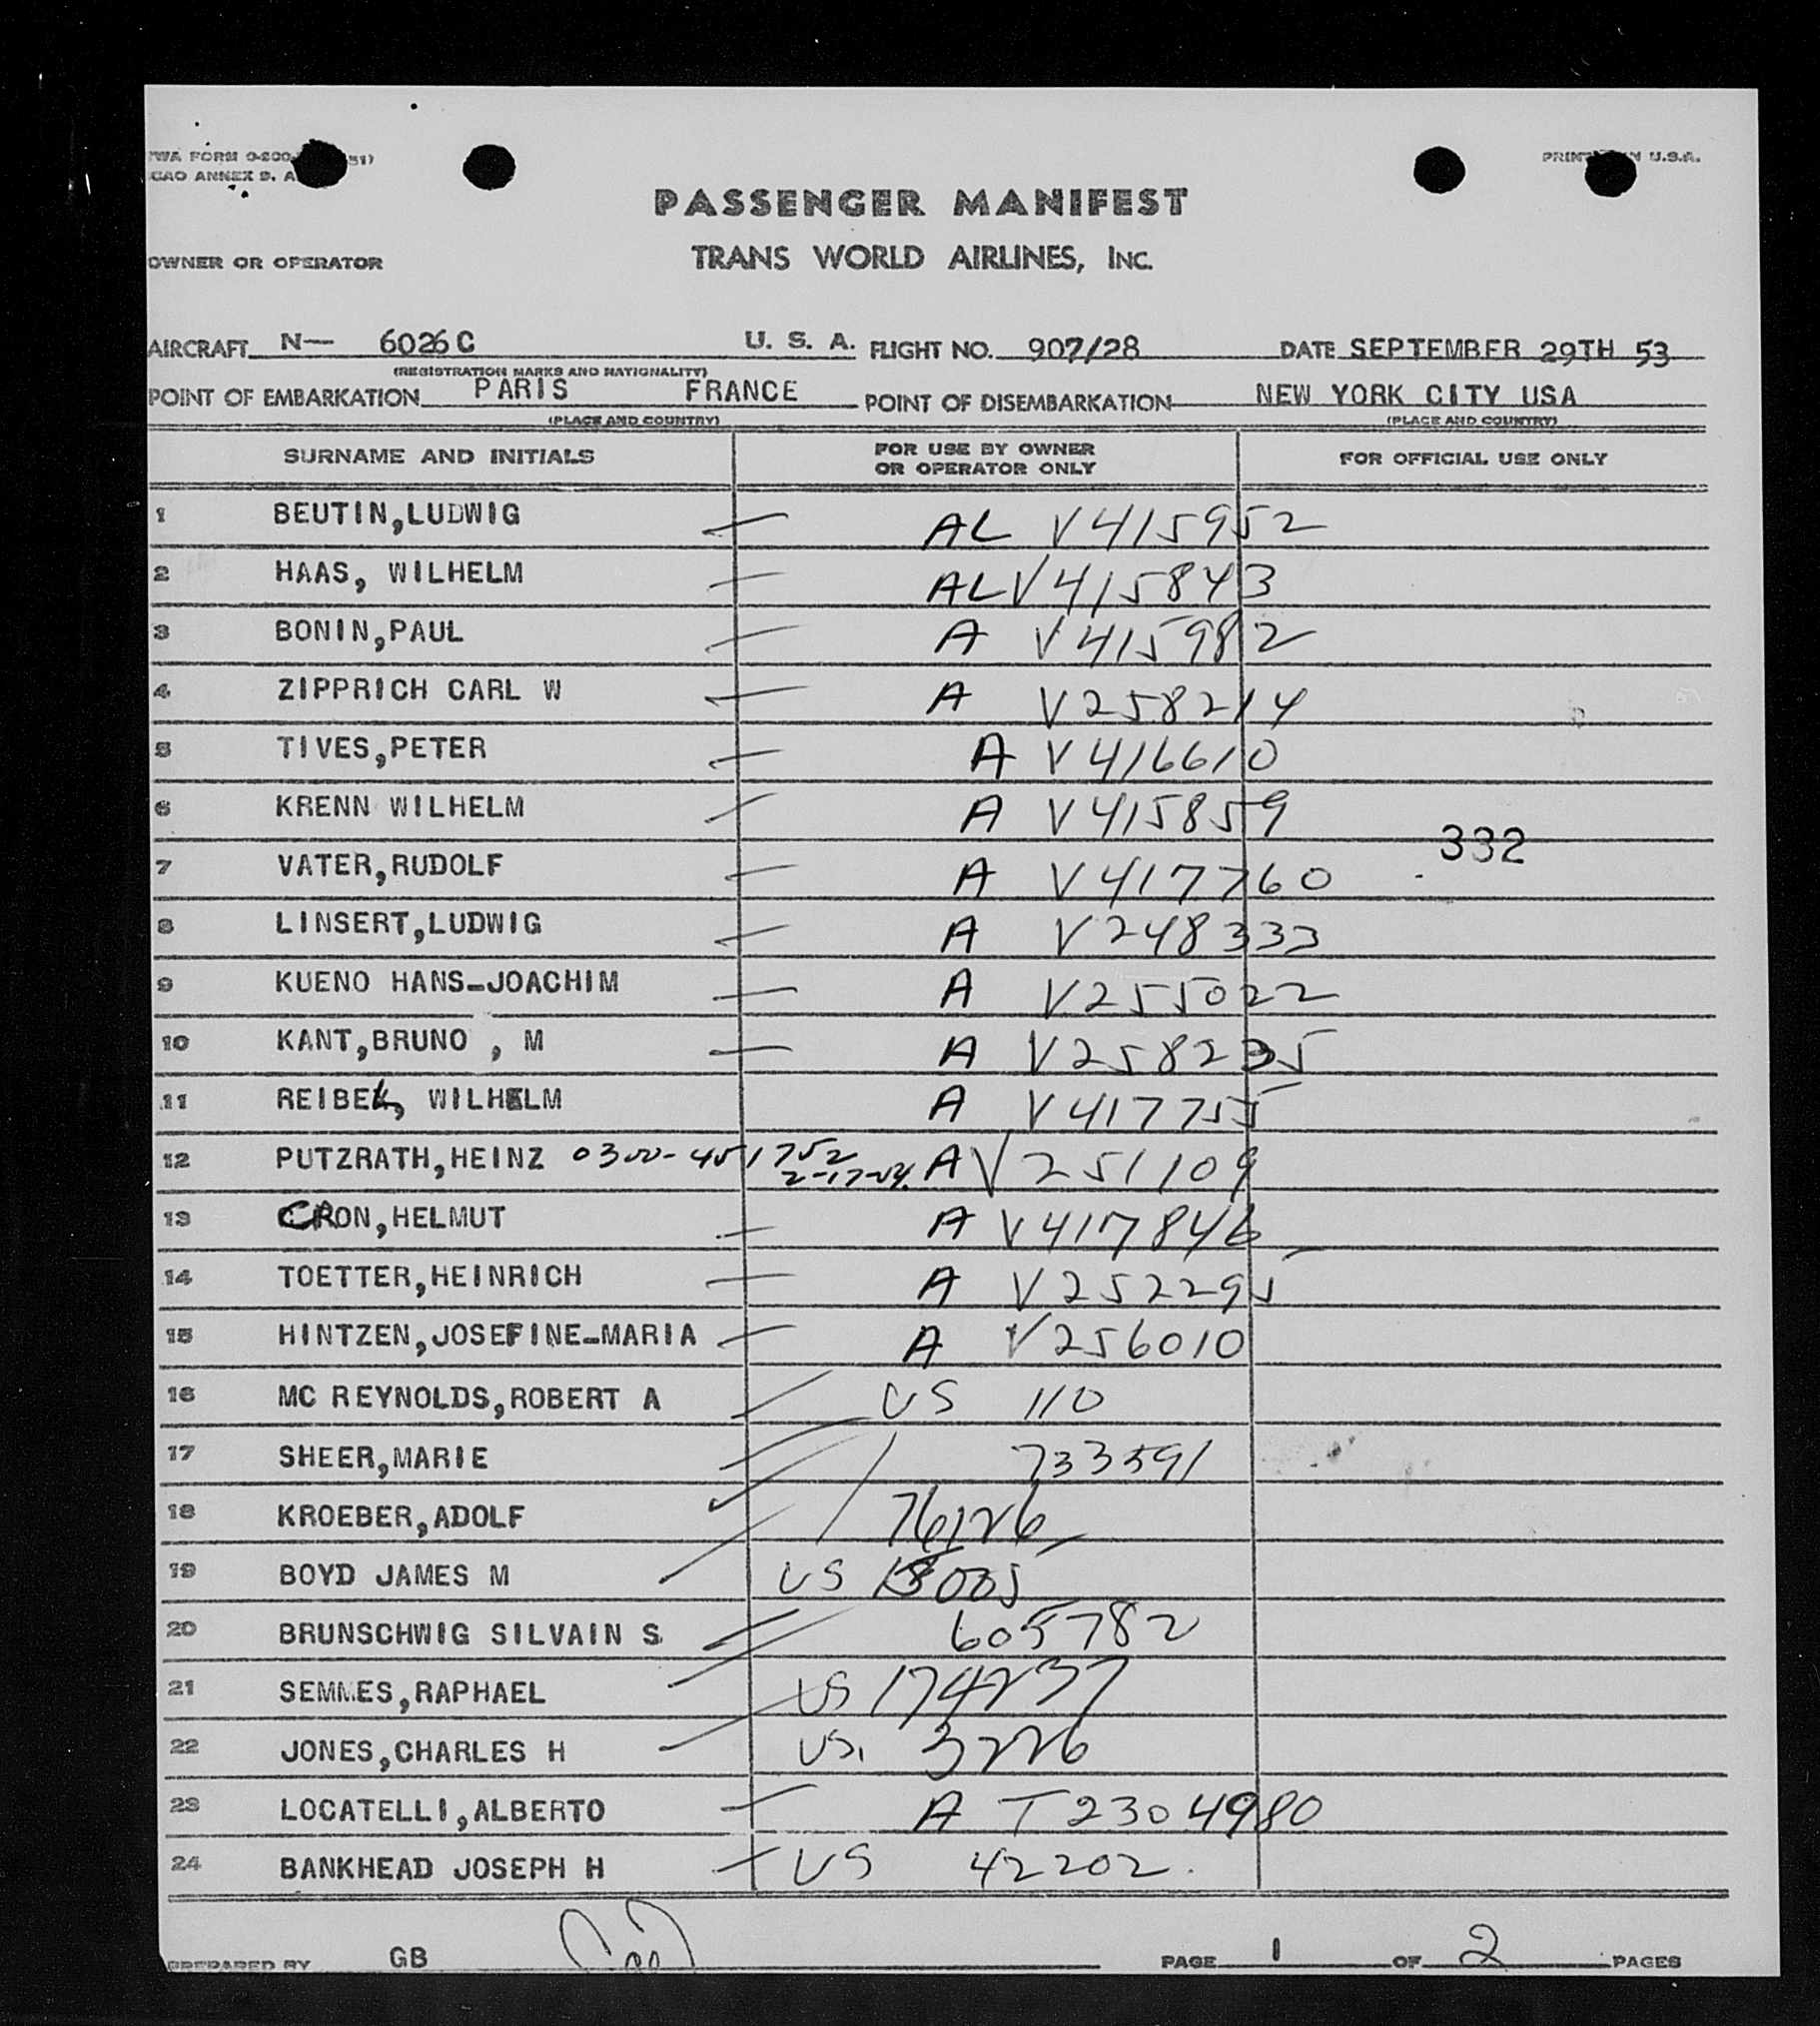 TWA FORM 0-200 51)
ICAO ANNEX 9. A
U.S.A.
PASSENGER MANIFEST
OWNER OR OPERATOR TRANS WORLD AIRLINES, INC.
AIRCRAFT N— 6026C U. S. A. FLIGHT NO. 907/28 DATE SEPTEMBER 29TH 53
(REGISTRATION MARKS AND NATIONALITY)
POINT OF EMBARKATION PARIS FRANCE POINT OF DISEMBARKATION NEW YORK CITY USA
(PLACE AND COUNTRY) (PLACE AND COUNTRY)
SURNAME AND INITIALS FOR USE BY OWNER OR OPERATOR ONLY FOR OFFICIAL USE ONLY
1 BEUTIN,LUDWIG AL V415952
2 HAAS, WILHELM AL V415843
3 BONIN,PAUL A V415982
4 ZIPPRICH CARL W A V258214
5 TIVES,PETER A V416610
6 KRENN WILHELM A V415859
332
7 VATER,RUDOLF A V417760
8 LINSERT,LUDWIG A V248333
9 KUENO HANS-JOACHIM A V255022
10 KANT,BRUNO , M A V258235
11 REIBEL, WILHELM A V417755
12 PUTZRATH,HEINZ 0300-451752 2-17-54. A V251109
13 CRON,HELMUT A V417846
14 TOETTER,HEINRICH A V252295
15 HINTZEN,JOSEFINE-MARIA A V256010
16 MC REYNOLDS,ROBERT A US 110
17 SHEER,MARIE 733591
18 KROEBER,ADOLF 76126
19 BOYD JAMES M US
20 BRUNSCHWIG SILVAIN S. 605782
21 SEMMES,RAPHAEL US 174237
22 JONES,CHARLES H US. 3226
23 LOCATELLI,ALBERTO A T2304980
24 BANKHEAD JOSEPH H US 42202.
PREPARED BY GB PAGE 1 OF 2 PAGES